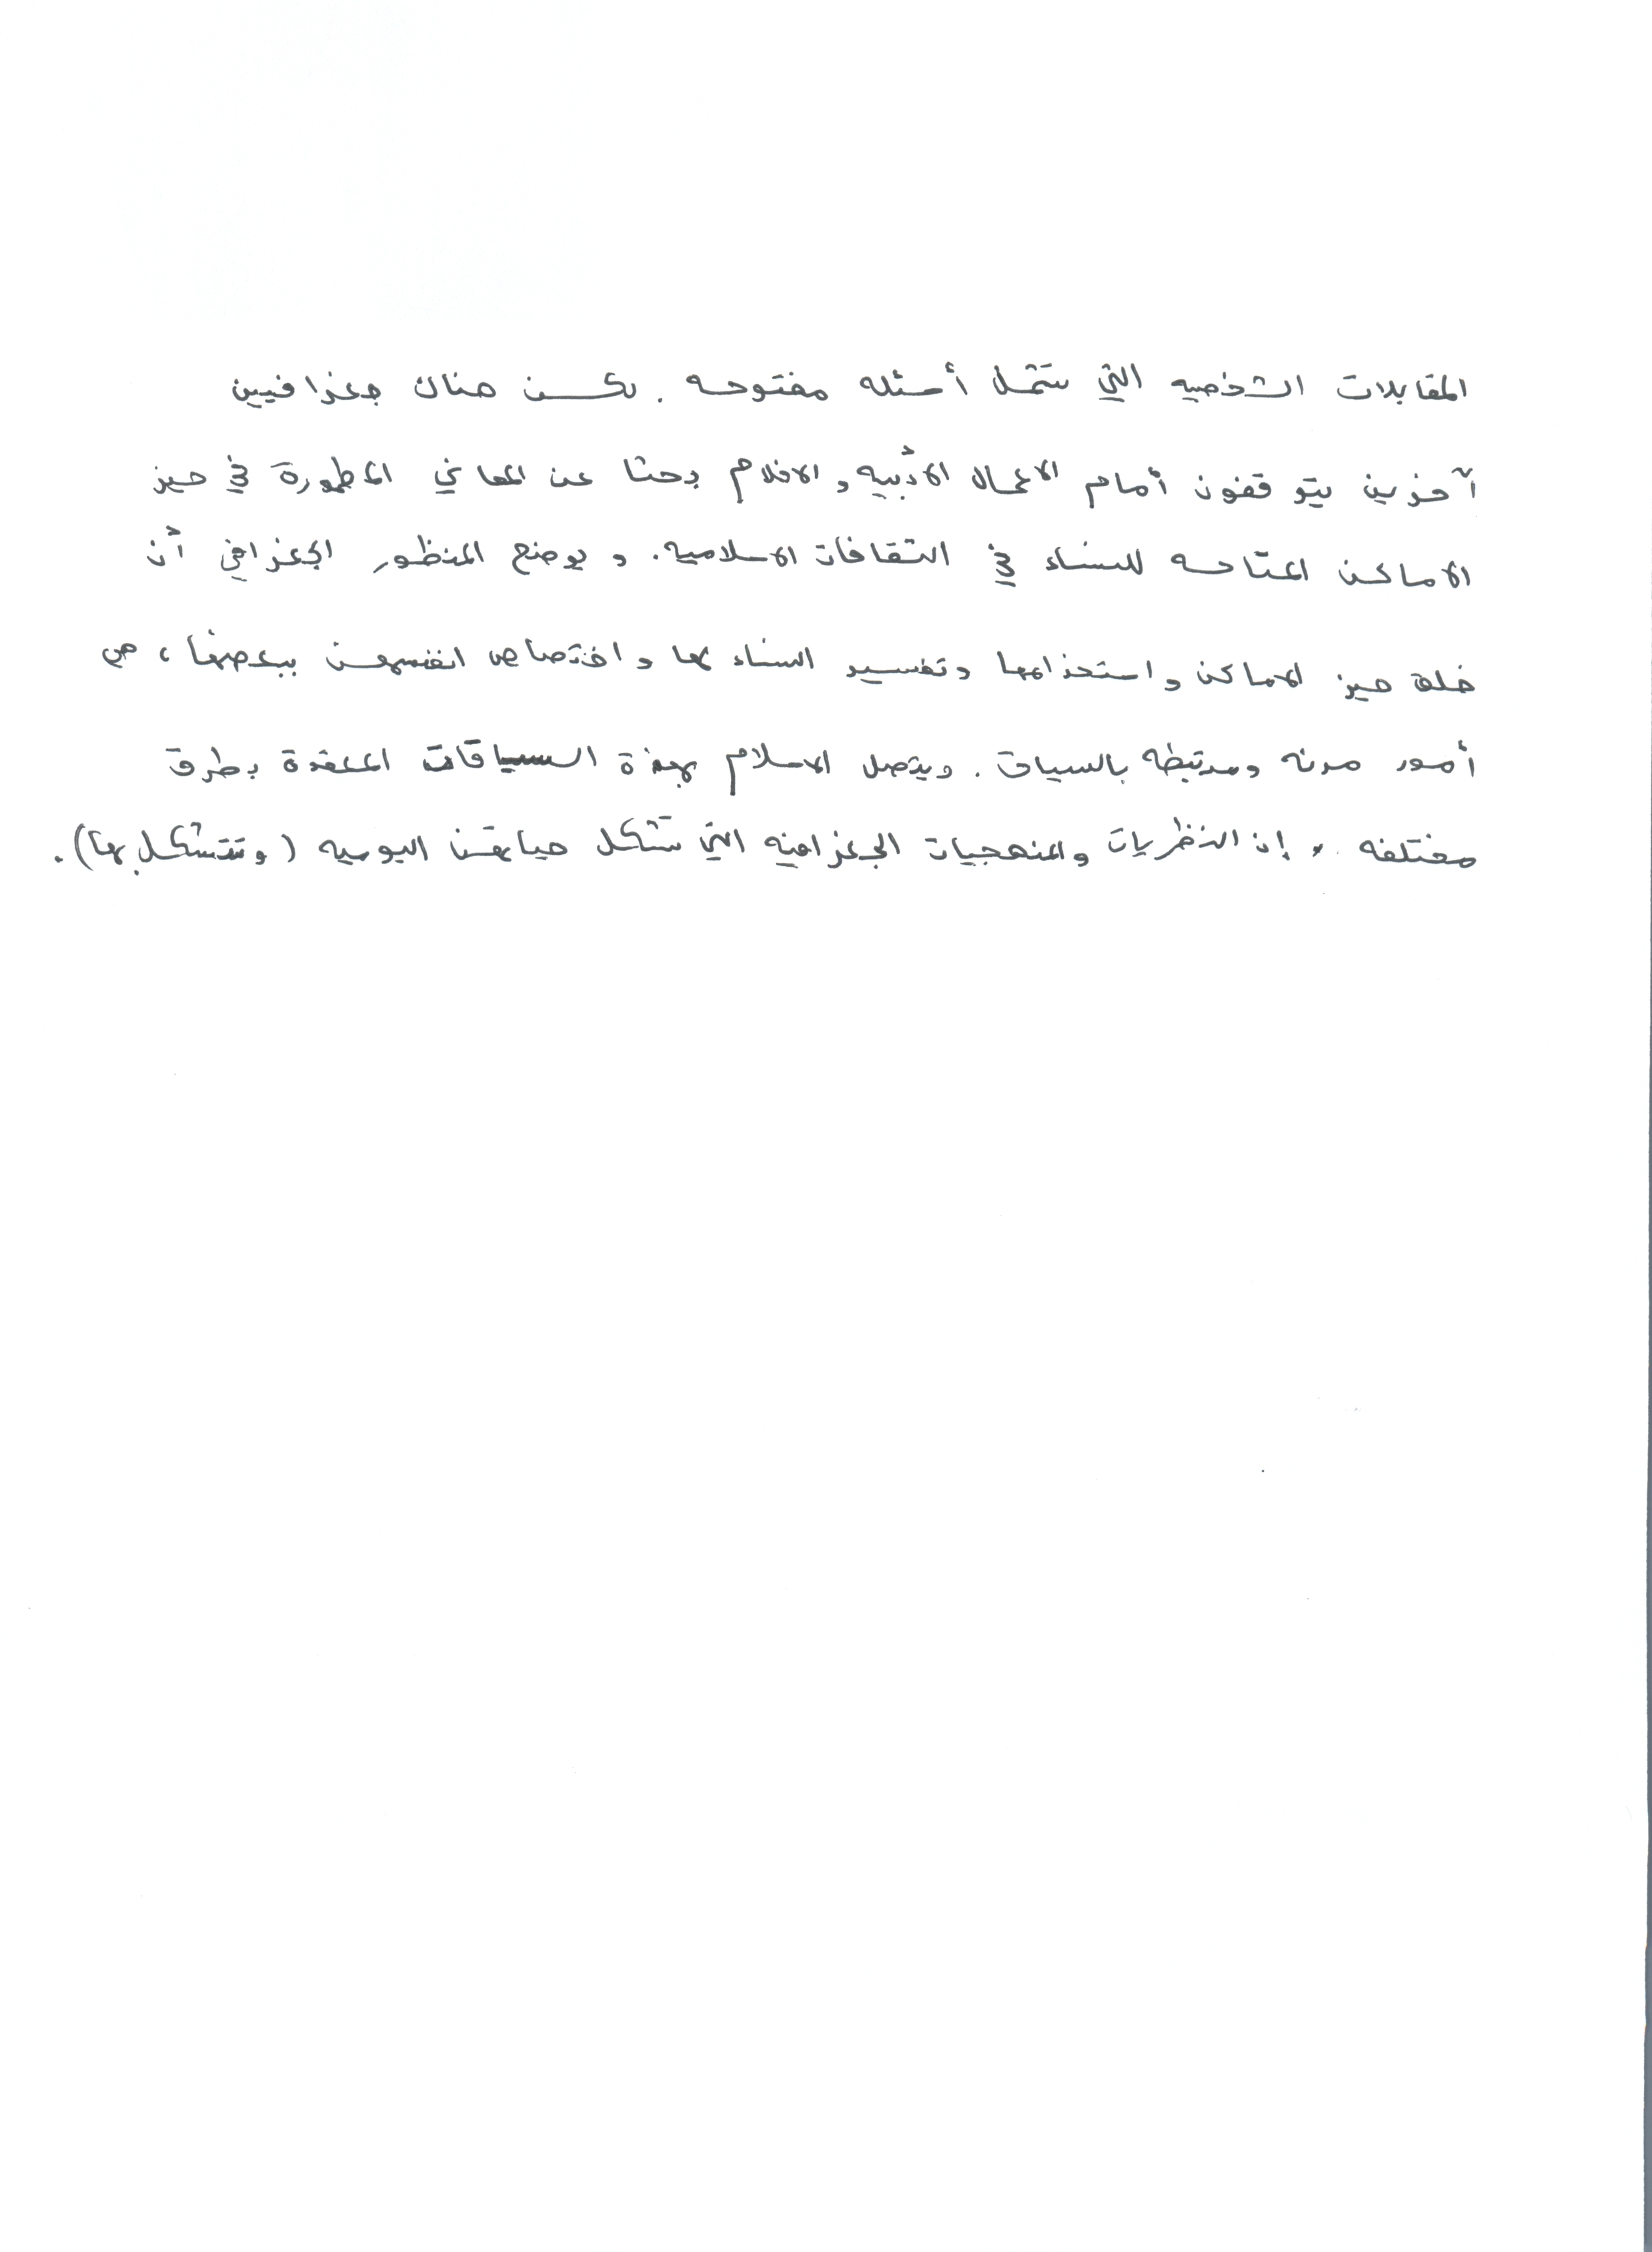 المقابلات الشخصيه التي تشمل أسئله مفتوحه . لكن هناك جغرافيين
آخرين يتوقفون أمام الاعمال الأدبيه و الافلام بحثا عن المعاني المطمورة في حيز
الاماكن المتاحه للنساء في الثقافات الاسلاميه . و يوضح المنظور الجغرافي أن
خلق حيز الاماكن و استخدامها وتفسير النساء لها و اختصاص انفسهن ببعضها ، هي
أمور مرنه ومرتبطه بالسياق . ويتصل الاسلام بهذة السياقات المعقدة بطرق
مختلفه . إن النظريات والمنهجيات الجغرافيه التي تشكل حياتهن اليوميه ( وتتشكل بها ) .